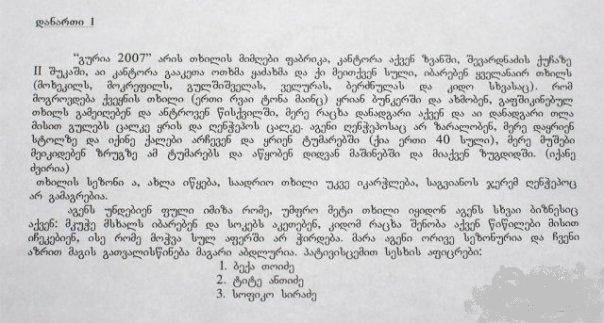 დანართი I
"გურია 2007" არის თხილის მიმღები ფაბრიკა, კანტორა აქვენ ზვანში, შევარდნაძის ქუჩაზე
II შუკაში, აი კანტორა გააკეთა ოთხმა ყაძახმა და ქი მეითქვენ სული, იბარებენ ყველანაირ თხილს
(მოხეკილს, მოკრეფილს, გულშიშველას, ველურას, ბერძნულას და კიდო სხვასაც). რომ
მოგროვდება ქვეყნის თხილი (ერთი რვაი ტონა მაინც) ყრიან ბუნკერში და ახმობენ, გაფშიკინებულ
თხილს გამეიღებენ და ანტროვენ წისქვილში, მერე რაცხა დანადგარი აქვენ და აი დანადგარი თლა
მისით გულებს ცალკე ყრის და ღენჭეპოს ცალკე. აგენი ღენჭეპოსაც არ ზარალობენ, მერე დაყრიენ
სტოლზე და იქინე ქალები არჩევენ და ყრიენ ტუმარებში (ქია ერთი 40 სული), მერე მუშები
მეიკიდებენ ზრუგზე ამ ტუმარებს და აწყობენ დიდვან მაშინებში და მიაქვენ ზუგდიდში. (იქანე
ძვირია)
თხილის სეზონი ა, ახლა იწყება, საადრიო თხილი უკვე იკარჭლება, საგვიანოს ჯერემ ღენჭეპოც
არ გამაგრებია.
აგენს უნდებიენ ფული იმიზა რომე, უმფრო მეტი თხილი იყიდონ აგენს სხვაი ბიზნესიც
აქვენ: მჟუჟე მსხალს იბარებენ და სოკებს აკეთებენ, კიდომ რაცხა შენობა აქვენ წიწილები მისით
იჩეკებიენ, ისე რომე მოჭვა სულ აფერში არ ჭირდება. მარა აგენი ორივე სეზონურია და ჩვენი
აზრით მაგის გათვალისწინება მაგარი აბდლურია. პატივისცემით სესხის აფიცრები:
1. ბექა თოიძე
2. ტიტე ანთიძე
3. სოფიკო სირაძე